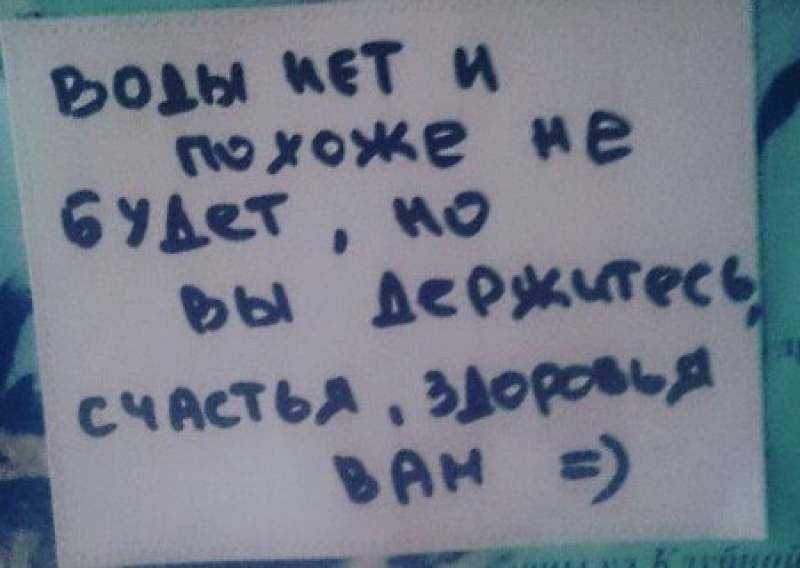 ВОДЫ НЕТ И
ПОХОЖЕ НЕ
БУДЕТ, НО
ВЫ ДЕРЖИТЕСЬ,
СЧАСТЬЯ, ЗДОРОВЬЯ
ВАМ =)